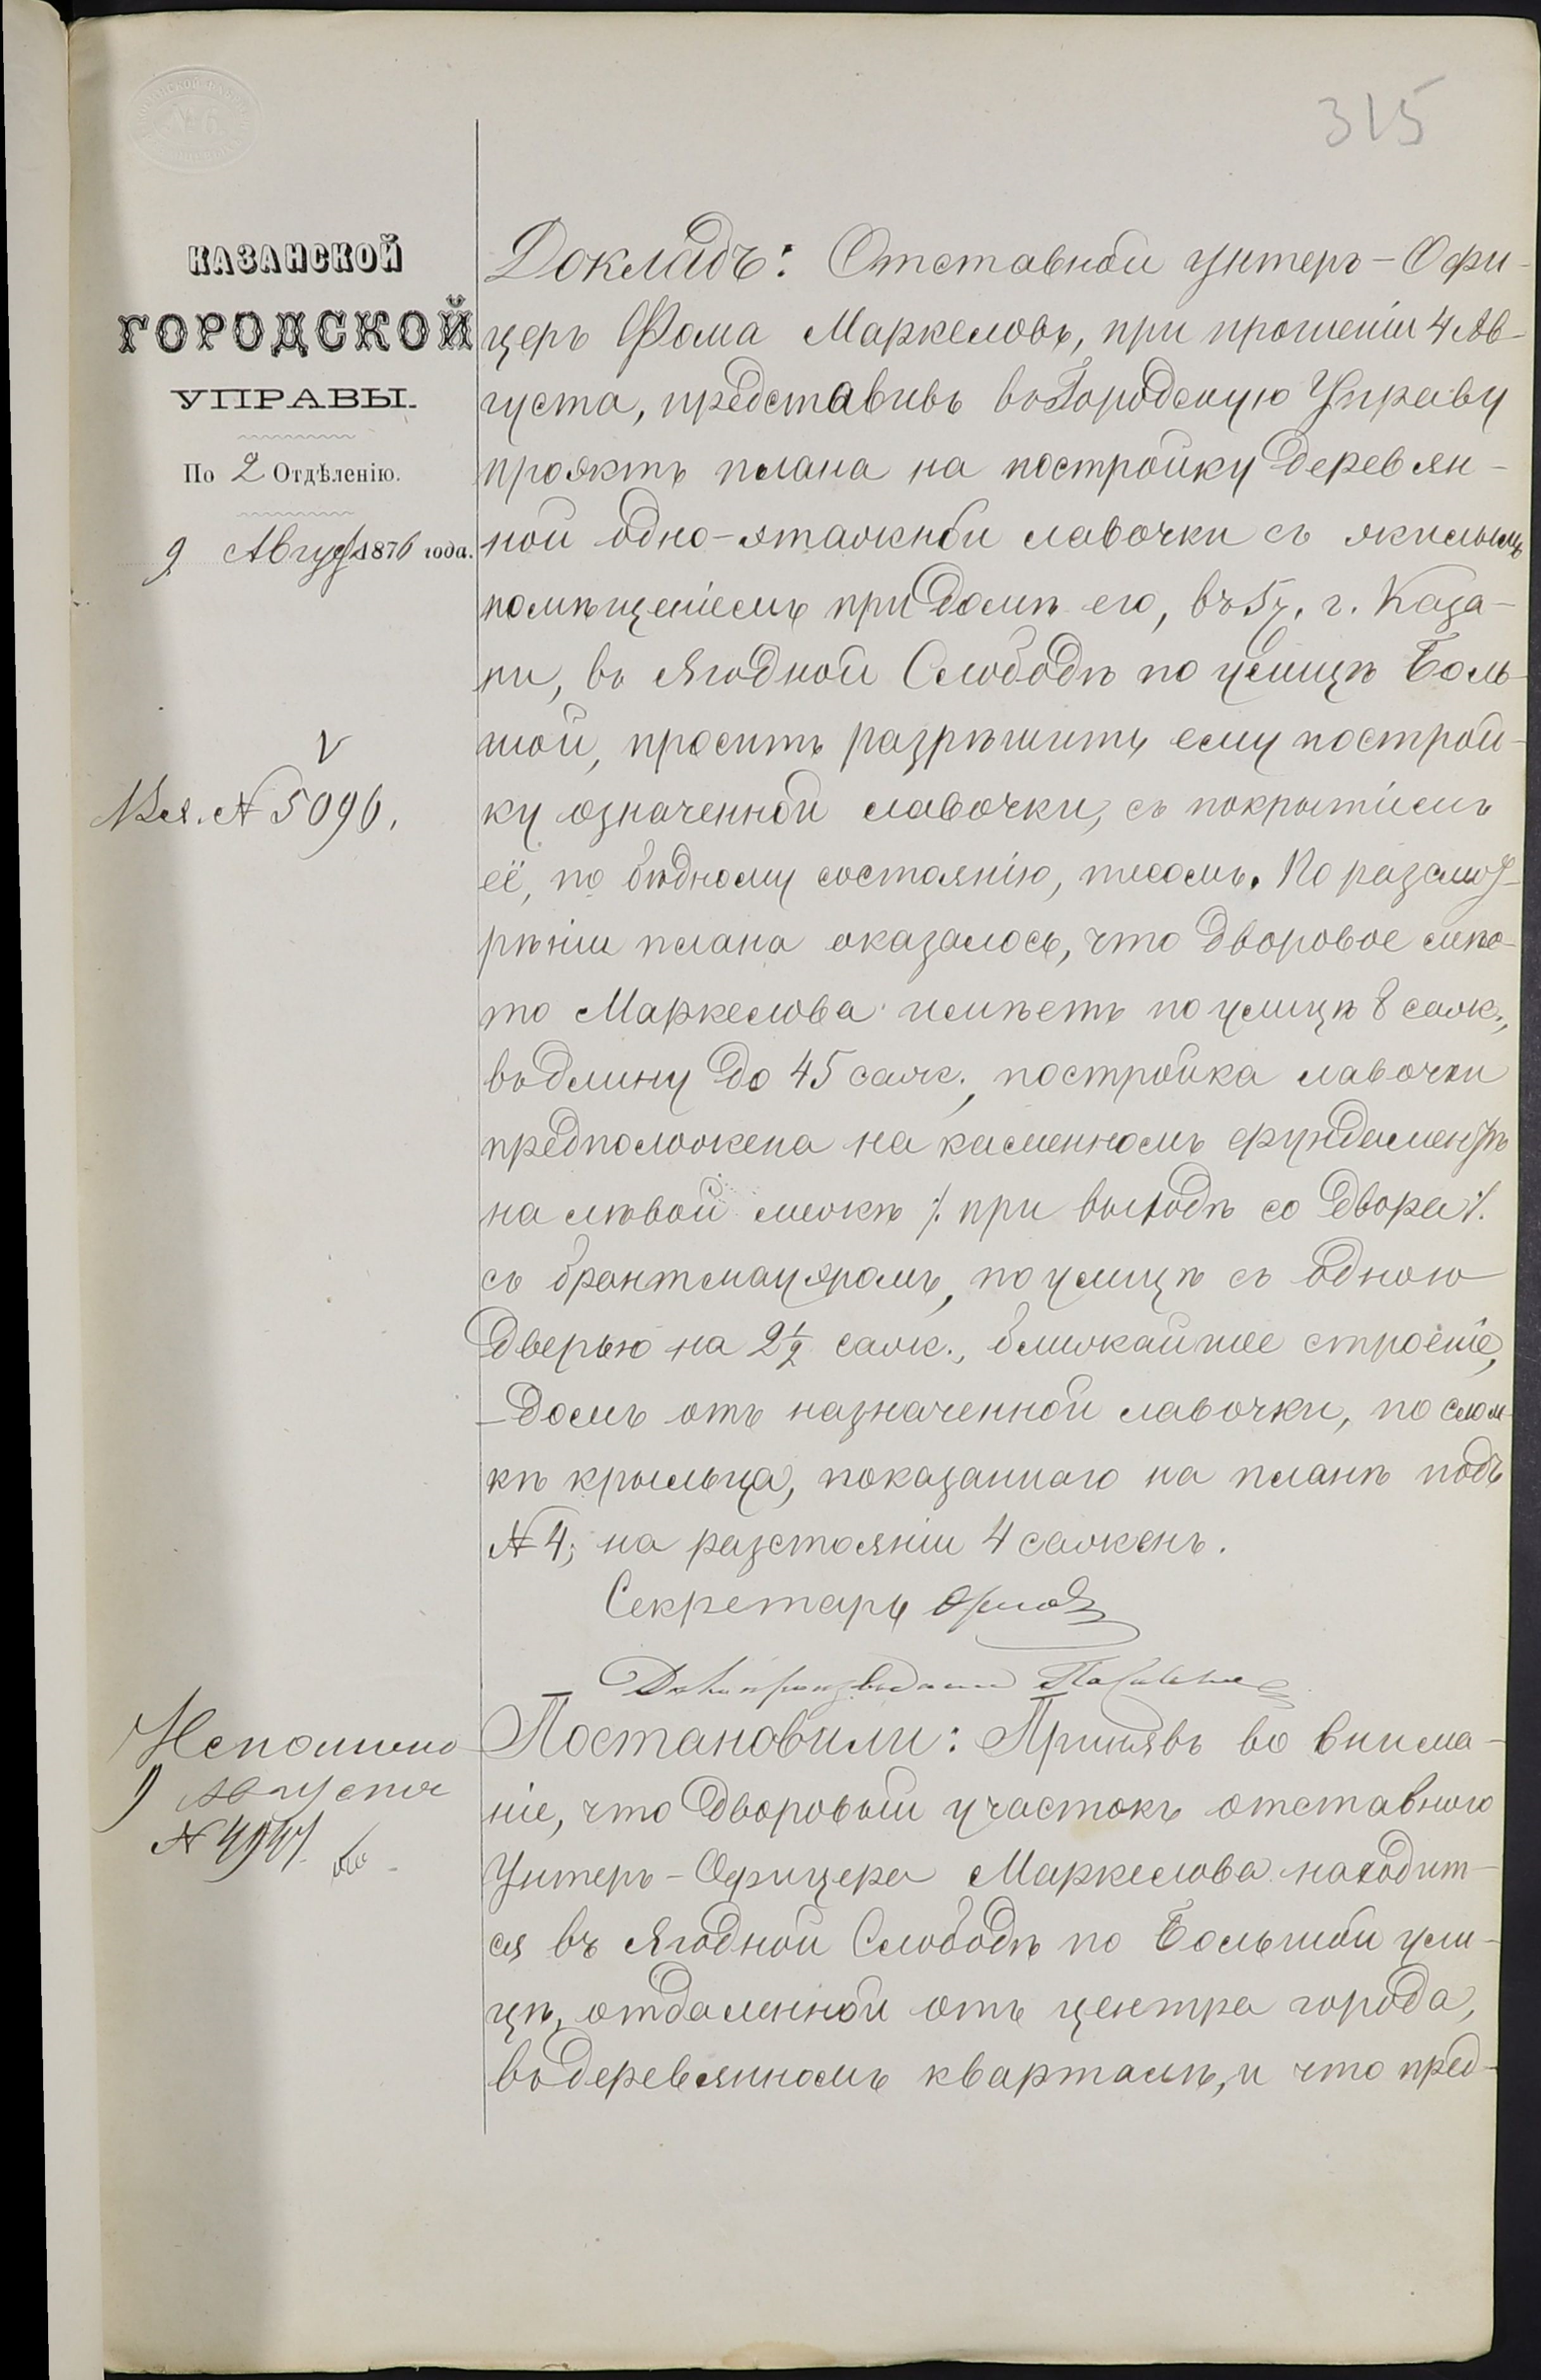 315
КАЗАНСКОЙ
ГОРОДСКОЙ
УПРАВЫ.
По 2 Отдѣленію.
9 Август 1876 года.
Вх. № 5096.
Докладъ: Отставной унтеръ-Офи-
церъ Фома Маркеловъ, при прошеніи 4 Ав-
густа, представивъ въ Городскую Управу
проэктъ плана на постройку деревян-
ной одно-этажной лавочки съ жилымъ
помѣщеніемъ при домѣ его, въ 5 ч. г. Каза-
ни, въ Ягодной Слободѣ по улицѣ Боль-
шой, проситъ разрѣшить ему построй-
ку означенной лавочки, съ покрытіемъ
её, по бѣдному состоянію, тесомъ. По разсмот-
рѣніи плана оказалось, что дворовое мѣс-
то Маркелова имѣетъ по улицѣ 8 саж.,
въ длину до 45 саж., постройка лавочки
предположена на каменномъ фундаментѣ
на лѣвой межѣ ./. при выходѣ со двора ./.
съ брантмауэромъ, по улицѣ съ одною
дверью на 2½ саж., ближайшее строеніе,
- домъ отъ назначенной лавочки, по слом-
кѣ крыльца, показаннаго на планѣ подъ
№ 4, на разстояніи 4 сажень.
Секретарь Орлов
Делопроизводитель
Исполнено
9 августа
№ 4941.
Постановили: Принявъ во внима-
ніе, что дворовый участокъ отставного
Унтеръ-Офицера Маркелова находит-
ся въ Ягодной Слободѣ по Большой ули-
цѣ, отдаленной отъ центра города,
въ деревянномъ кварталѣ, и что пред-